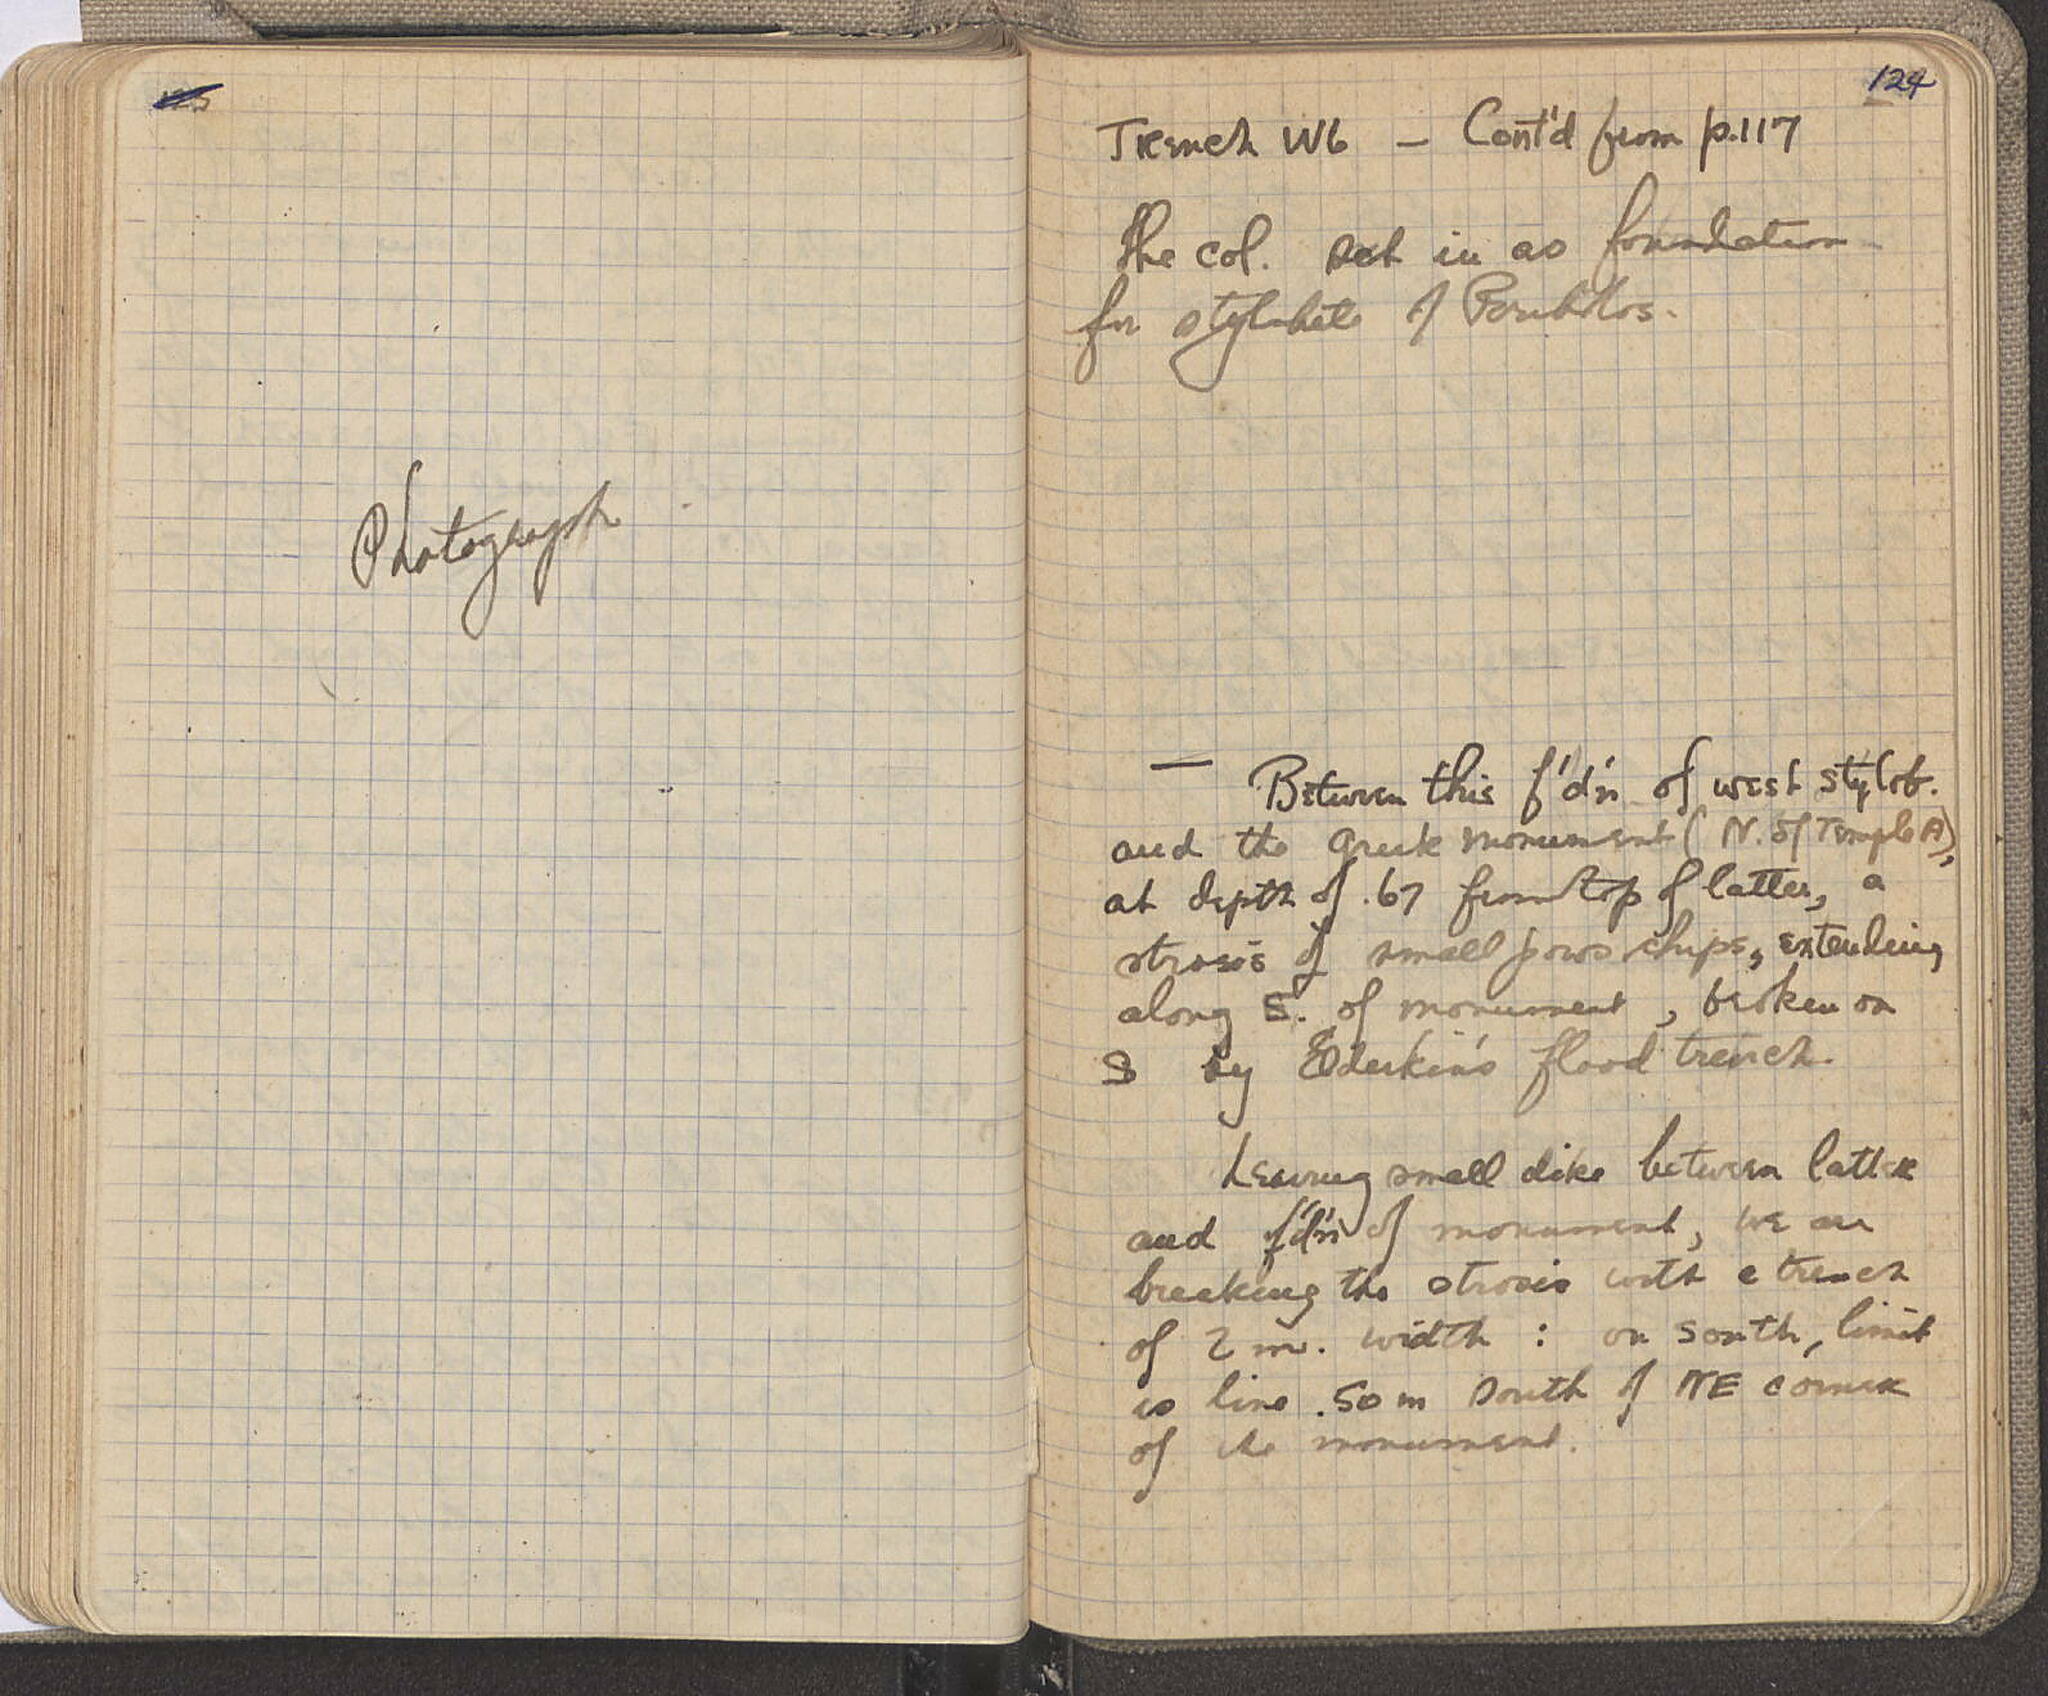 Photograph
124
Trench W6 – Cont'd from p.117
The col. set in as foundation
for stylobate of Peribolos.
— Between this f'd'n of west stylob.
and the Greek monument (N. of Temple A),
at depth of .67 from top of latter, a
strosis of small poros chips, extending
along S. of monument, broken on
S by Elderkin's flood trench.
Leaving small dike between latter
and f'd'n of monument, we are
breaking the strosis with a trench
of 2 m. width : on south, limit
is line .50 m south of NE corner
of the monument.